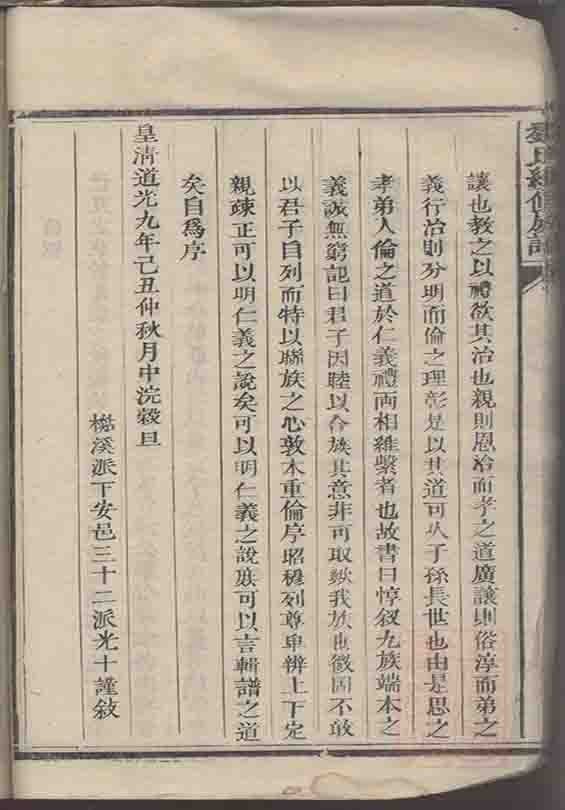 氏續修族譜
讓也教之以禮欲其治也親則恩洽而孝之道廣讓則俗淳而弟之
義行治則分明而倫之理彰是以其道可以子孫長世也由是思之
孝弟人倫之道於仁義禮兩相維繫者也故書曰惇叙九族端本之
義誠無窮記曰君子因睦以合族其意非可取與我族也徵固不敢
以君子自列而特以聯族之心敦本重倫序昭穆列尊卑辨上下定
親疎正可以明仁義之說矣可以明仁義之說庶可以言輯譜之道
矣自爲序
皇清道光九年己丑仲秋月中浣穀旦
溪派下安邑三十二派光十謹敍